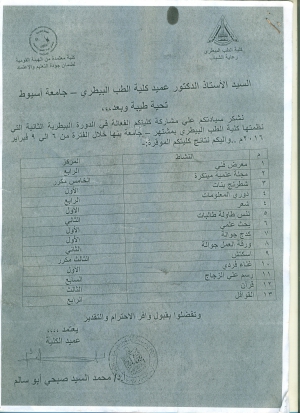 كلية الطب البيطري
رعاية الشباب
كلية معتمدة من الهيئة القومية
لضمان جودة التعليم والاعتماد
السيد الأستاذ الدكتور عميد كلية الطب البيطري – جامعة أسيوط
تحية طيبة وبعد،،،
نشكر سيادتكم على مشاركة كليتكم الفعالة في الدورة البيطرية الثانية التي
نظمتها كلية الطب البيطري بمشتهر – جامعة بنها خلال الفترة من ٦ الى ٩ فبراير
٢٠١٦م ... واليكم نتائج كليتكم الموقرة:-
م النشاط المركز
١ معرض فني الرابع
٢ مجلة علمية مبتكرة الخامس مكرر
٣ شطرنج بنات الأول
٤ دوري المعلومات الأول
٥ شعر الرابع
٦ تنس طاولة طالبات الثاني
٧ بحث علمي الأول
٨ كدج جوالة الأول
٩ ورقة العمل جوالة الثاني
١٠ اسكتش الثالث مكرر
١١ غناء فردي الأول
١٢ رسم على الزجاج السابع
قرآن الثالث
١٣ القوافل الرابع
وتفضلوا بقبول وافر الاحترام والتقدير
يعتمد ،،،،
عميد الكلية
أ.د/ محمد السيد صبحي أبو سالم